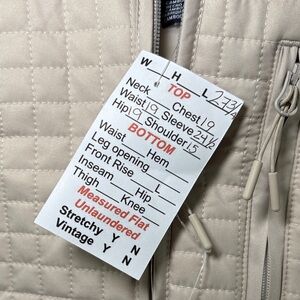 W H L 27 3/4
TOP
Neck Chest 19
Waist 19 Sleeve 24 1/2
Hip 19 Shoulder 15
BOTTOM
Waist Hem
Leg opening
Front Rise L
Inseam Hip
Thigh Knee
Measured Flat
Unlaundered
Stretchy Y N
Vintage Y N